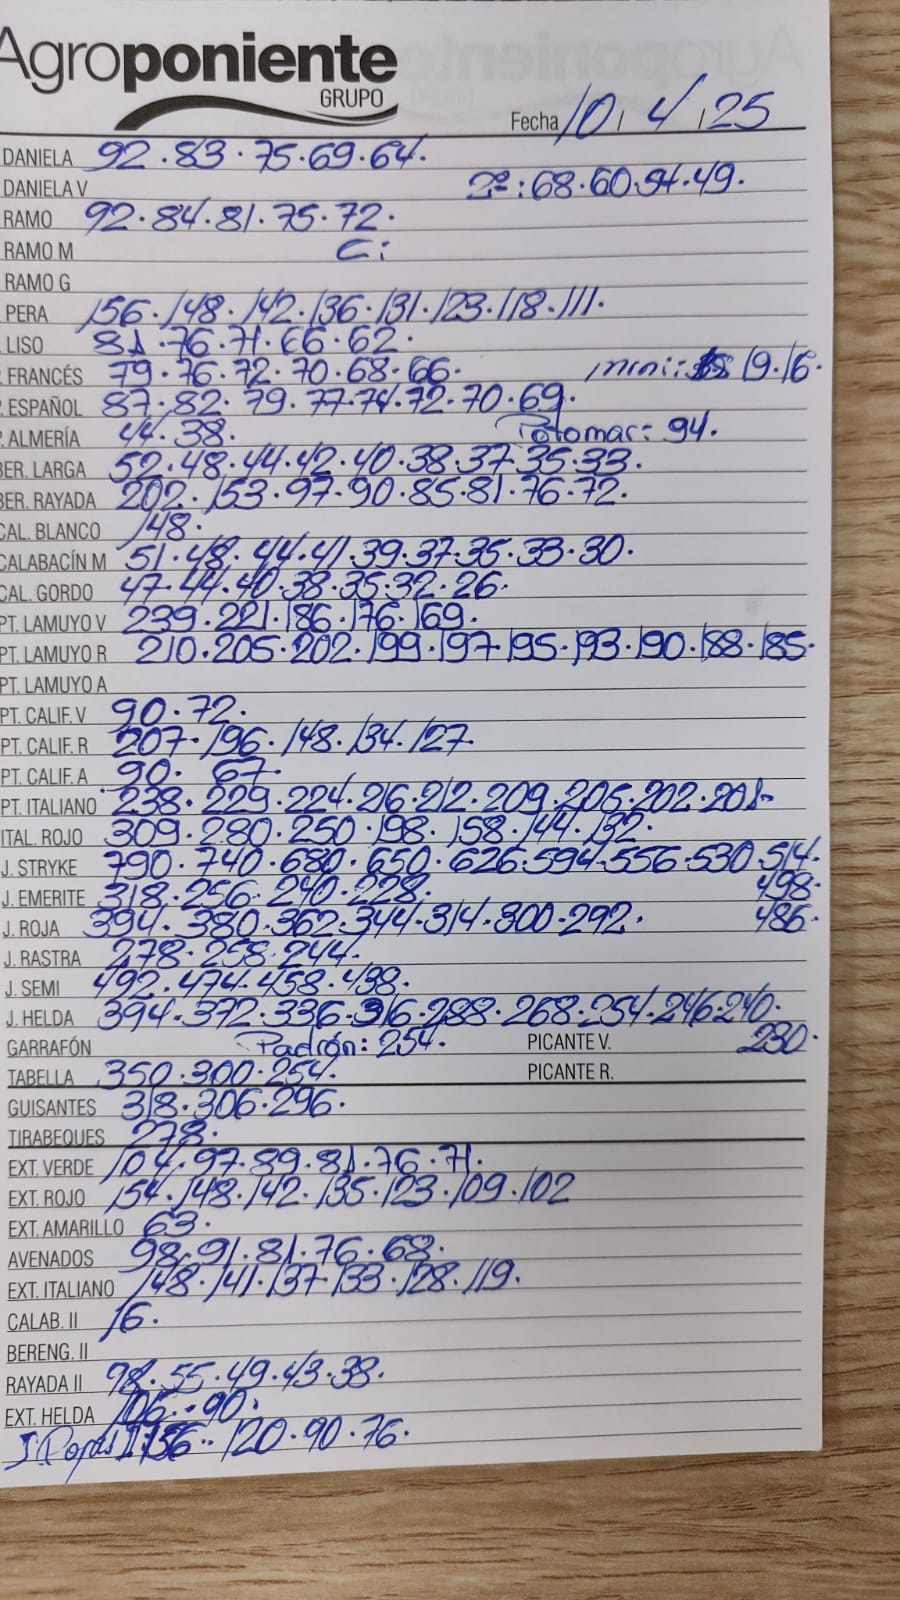 Agroponiente
GRUPO
Fecha 10, 4, 25
DANIELA 92. 83. 75. 69. 64.
DANIELA V 2ª: 68. 60. 54. 49.
RAMO 92. 84. 81. 75. 72.
RAMO M C:
RAMO G
PERA 156. 148. 142. 136. 131. 123. 118. 111.
LISO 81. 76. 71. 66. 62.
P. FRANCÉS 79. 76. 72. 70. 68. 66. mini: 19. 16.
P. ESPAÑOL 87. 82. 79. 77. 74. 72. 70. 69.
P. ALMERÍA 44. 38. Potomar: 94.
BER. LARGA 52. 48. 44. 42. 40. 38. 37. 35. 33.
BER. RAYADA 202. 153. 97. 90. 85. 81. 76. 72.
CAL. BLANCO 148.
CALABACÍN M 51. 48. 44. 41. 39. 37. 35. 33. 30.
CAL. GORDO 47. 44. 40. 38. 35. 32. 26.
PT. LAMUYO V 239. 221. 186. 176. 169.
PT. LAMUYO R 210. 205. 202. 199. 197. 195. 193. 190. 188. 185.
PT. LAMUYO A
PT. CALIF. V 90. 72.
PT. CALIF. R 207. 196. 148. 134. 127.
PT. CALIF. A 90. 67.
PT. ITALIANO 238. 229. 224. 216. 212. 209. 205. 202. 201.
ITAL. ROJO 309. 280. 250. 198. 158. 144. 132.
J. STRYKE 790. 740. 680. 650. 626. 594. 556. 530. 514.
J. EMERITE 318. 256. 240. 228. 498.
J. ROJA 394. 380. 362. 344. 314. 300. 292. 486.
J. RASTRA 278. 258. 244.
J. SEMI 492. 474. 458. 438.
J. HELDA 394. 372. 336. 316. 288. 268. 254. 246. 240.
GARRAFÓN Padrón: 254. PICANTE V. 230.
TABELLA 350. 300. 254. PICANTE R.
GUISANTES 318. 306. 296.
TIRABEQUES 278.
EXT. VERDE 104. 97. 89. 81. 76. 71.
EXT. ROJO 154. 148. 142. 135. 123. 109. 102
EXT. AMARILLO 63.
AVENADOS 98. 91. 81. 76. 68.
EXT. ITALIANO 148. 141. 137. 133. 128. 119.
CALAB. II 16.
BERENG. II
RAYADA II 98. 55. 49. 43. 38.
EXT. HELDA 106. 90.
J Rojas II 136. 120. 90. 76.